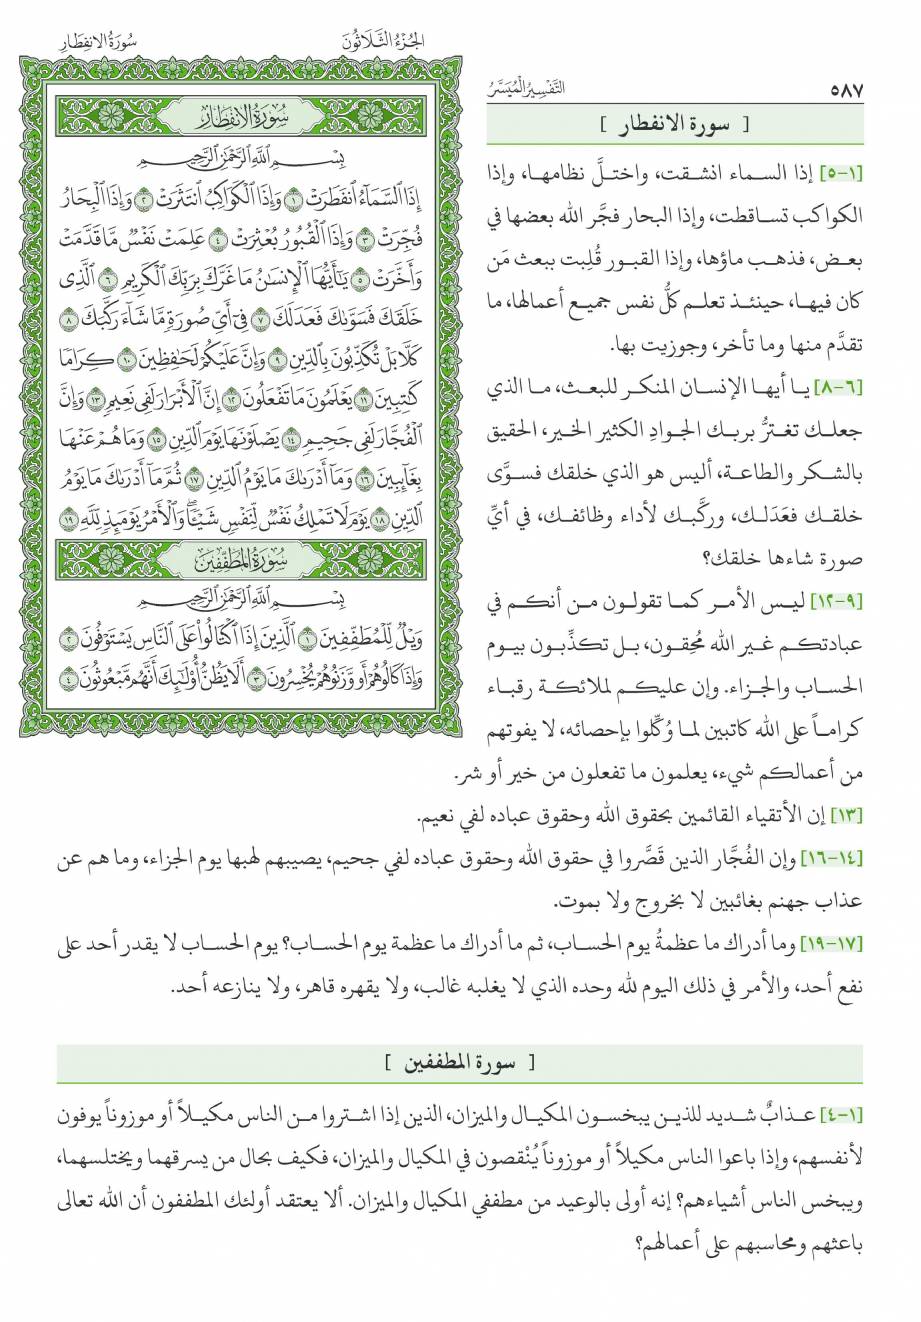 الجُزْءُ الثَّلَاثُونَ
سُورَةُ الانفِطَارِ
سُورَةُ الانفِطَارِ
بِسْمِ اللَّهِ الرَّحْمَٰنِ الرَّحِيمِ
إِذَا السَّمَاءُ انفَطَرَتْ ١ وَإِذَا الْكَوَاكِبُ انتَثَرَتْ ٢ وَإِذَا الْبِحَارُ
فُجِّرَتْ ٣ وَإِذَا الْقُبُورُ بُعْثِرَتْ ٤ عَلِمَتْ نَفْسٌ مَّا قَدَّمَتْ
وَأَخَّرَتْ ٥ يَٰأَيُّهَا الْإِنسَٰنُ مَا غَرَّكَ بِرَبِّكَ الْكَرِيمِ ٦ الَّذِي
خَلَقَكَ فَسَوَّىٰكَ فَعَدَلَكَ ٧ فِي أَيِّ صُورَةٍ مَّا شَاءَ رَكَّبَكَ ٨
كَلَّا بَلْ تُكَذِّبُونَ بِالدِّينِ ٩ وَإِنَّ عَلَيْكُمْ لَحَٰفِظِينَ ١٠ كِرَامًا
كَٰتِبِينَ ١١ يَعْلَمُونَ مَا تَفْعَلُونَ ١٢ إِنَّ الْأَبْرَارَ لَفِي نَعِيمٍ ١٣ وَإِنَّ
الْفُجَّارَ لَفِي جَحِيمٍ ١٤ يَصْلَوْنَهَا يَوْمَ الدِّينِ ١٥ وَمَا هُمْ عَنْهَا
بِغَائِبِينَ ١٦ وَمَا أَدْرَىٰكَ مَا يَوْمُ الدِّينِ ١٧ ثُمَّ مَا أَدْرَىٰكَ مَا يَوْمُ
الدِّينِ ١٨ يَوْمَ لَا تَمْلِكُ نَفْسٌ لِّنَفْسٍ شَيْـًٔا ۖ وَالْأَمْرُ يَوْمَئِذٍ لِّلَّهِ ١٩
سُورَةُ المُطَفِّفِينَ
بِسْمِ اللَّهِ الرَّحْمَٰنِ الرَّحِيمِ
وَيْلٌ لِّلْمُطَفِّفِينَ ١ الَّذِينَ إِذَا اكْتَالُوا عَلَى النَّاسِ يَسْتَوْفُونَ ٢
وَإِذَا كَالُوهُمْ أَو وَّزَنُوهُمْ يُخْسِرُونَ ٣ أَلَا يَظُنُّ أُولَٰئِكَ أَنَّهُم مَّبْعُوثُونَ ٤
٥٨٧
التَّفْسِيرُ الْمُيَسَّرُ
[ سورة الانفطار ]
[١-٥] إذا السماء انشقت، واختلَّ نظامها، وإذا
الكواكب تساقطت، وإذا البحار فجَّر الله بعضها في
بعض، فذهب ماؤها، وإذا القبور قُلِبت ببعث مَن
كان فيها، حينئذ تعلم كلُّ نفس جميع أعمالها، ما
تقدَّم منها وما تأخر، وجوزيت بها.
[٦-٨] يا أيها الإنسان المنكر للبعث، ما الذي
جعلك تغترُّ بربك الجوادِ الكثير الخير، الحقيق
بالشكر والطاعة، أليس هو الذي خلقك فسوَّى
خلقك فعَدَلك، وركَّبك لأداء وظائفك، في أيِّ
صورة شاءها خلقك؟
[٩-١٢] ليس الأمر كما تقولون من أنكم في
عبادتكم غير الله مُحِقون، بل تكذِّبون بيوم
الحساب والجزاء. وإن عليكم لملائكة رقباء
كراماً على الله كاتبين لما وُكِّلوا بإحصائه، لا يفوتهم
من أعمالكم شيء، يعلمون ما تفعلون من خير أو شر.
[١٣] إن الأتقياء القائمين بحقوق الله وحقوق عباده لفي نعيم.
[١٤-١٦] وإن الفُجَّار الذين قَصَّروا في حقوق الله وحقوق عباده لفي جحيم، يصيبهم لهبها يوم الجزاء، وما هم عن
عذاب جهنم بغائبين لا بخروج ولا بموت.
[١٧-١٩] وما أدراك ما عظمةُ يوم الحساب، ثم ما أدراك ما عظمة يوم الحساب؟ يوم الحساب لا يقدر أحد على
نفع أحد، والأمر في ذلك اليوم لله وحده الذي لا يغلبه غالب، ولا يقهره قاهر، ولا ينازعه أحد.
[ سورة المطففين ]
[١-٤] عذابٌ شديد للذين يبخسون المكيال والميزان، الذين إذا اشتروا من الناس مكيلاً أو موزوناً يوفون
لأنفسهم، وإذا باعوا الناس مكيلاً أو موزوناً يُنْقصون في المكيال والميزان، فكيف بحال من يسرقهما ويختلسهما،
ويبخس الناس أشياءهم؟ إنه أولى بالوعيد من مطففي المكيال والميزان. ألا يعتقد أولئك المطففون أن الله تعالى
باعثهم ومحاسبهم على أعمالهم؟